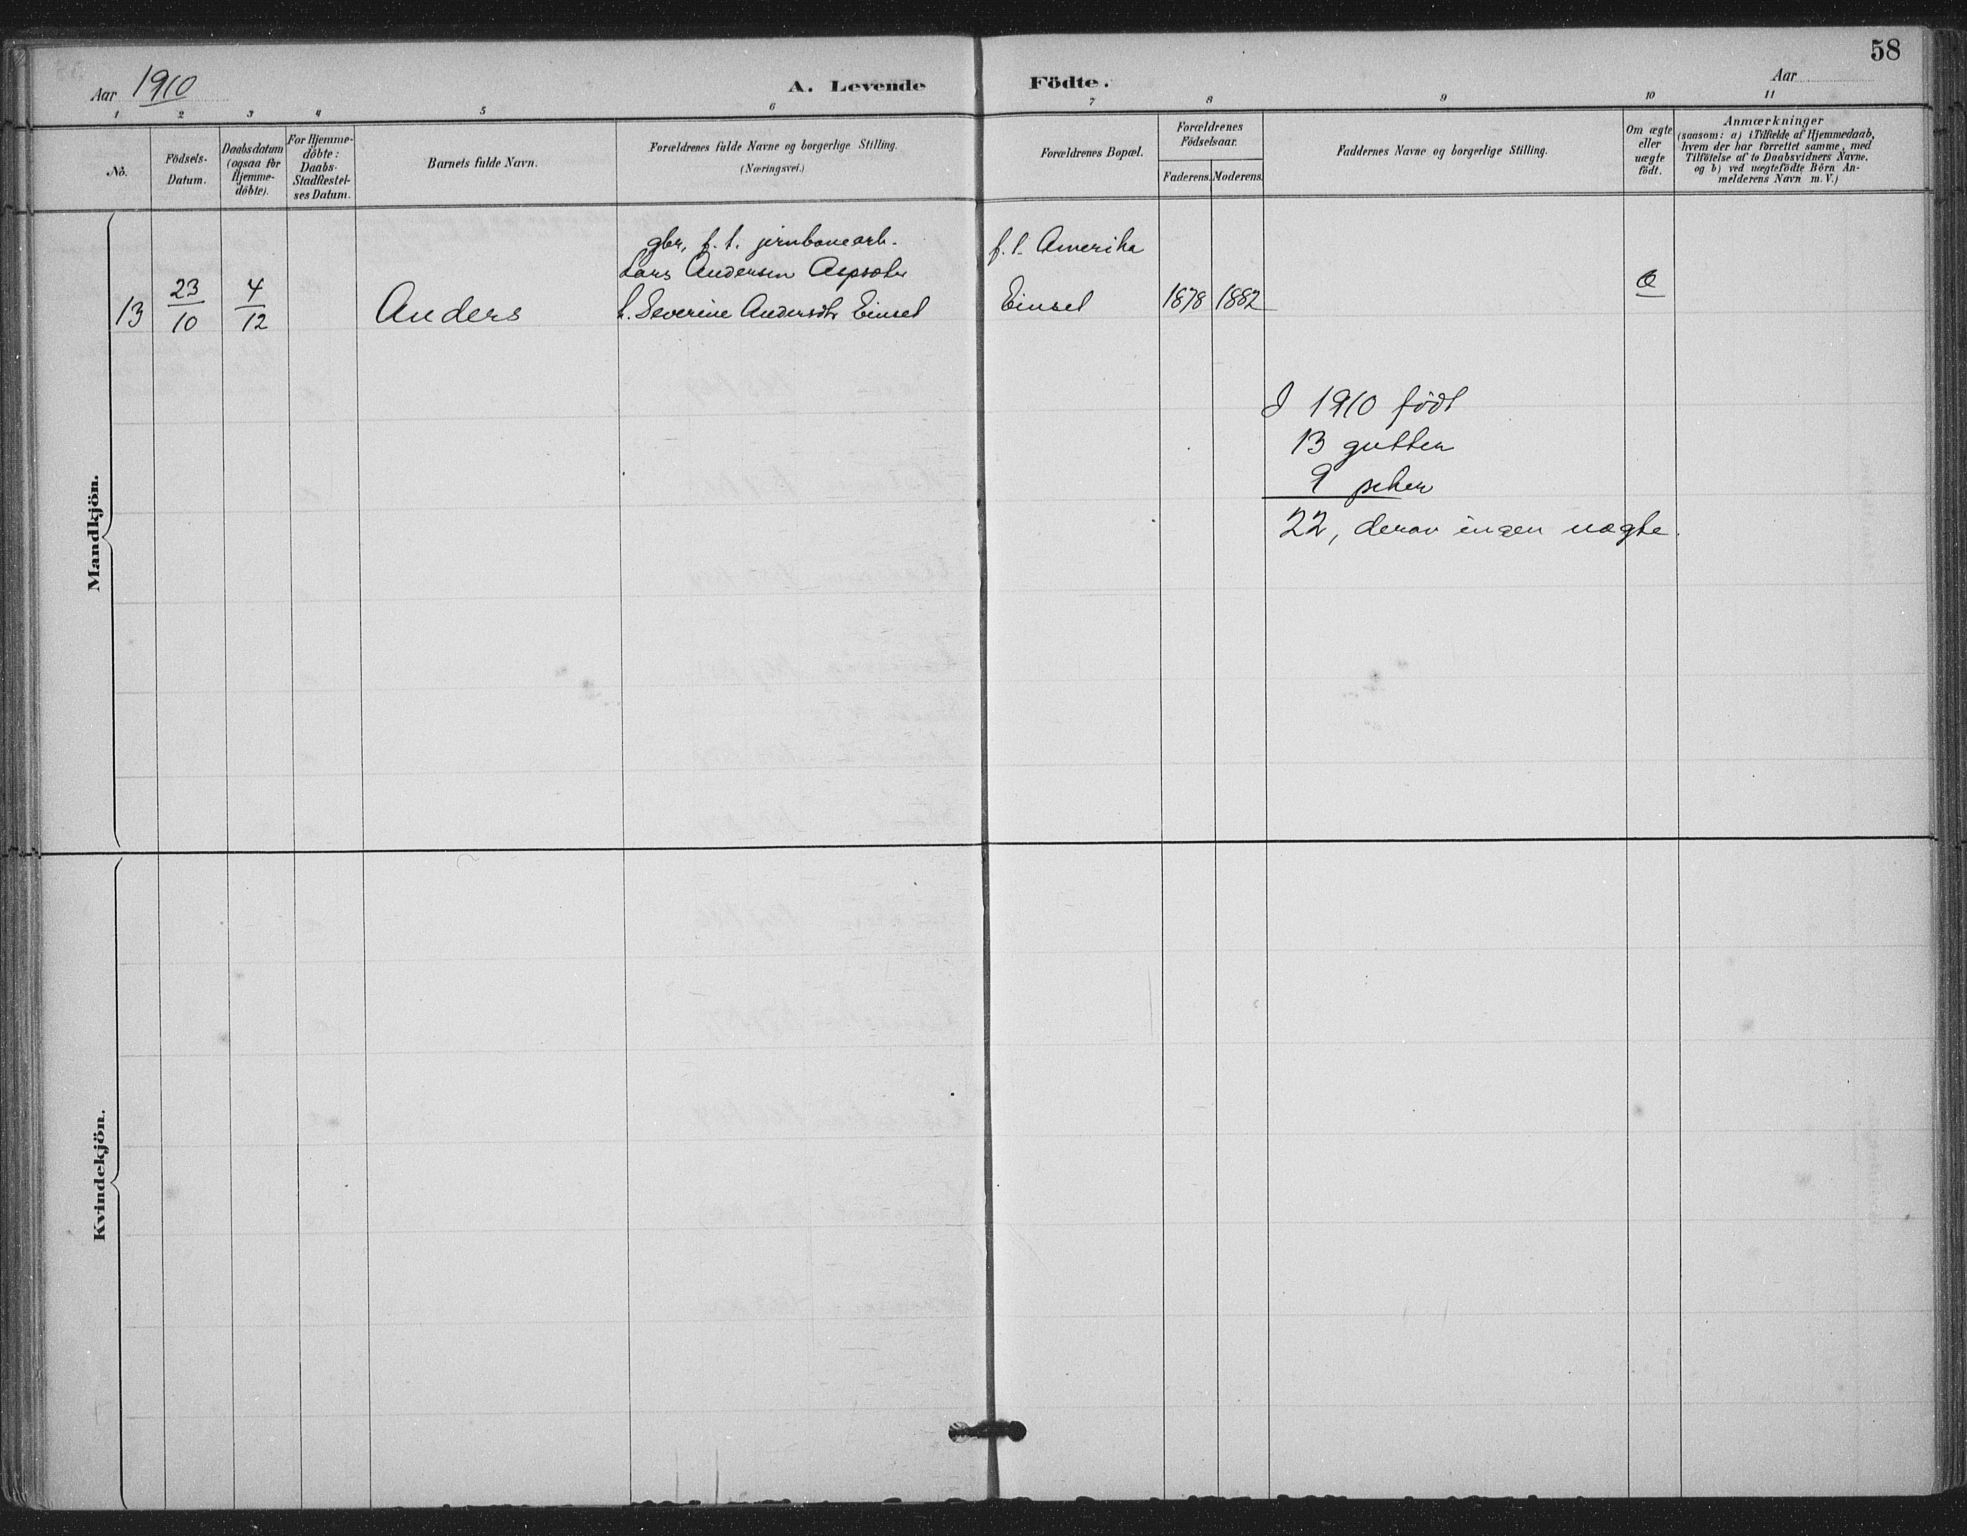 58
Aar 1910
A. Levende Födte.
Aar
1 2 3 4 5 6 7 8 9 10 11
No.
Födsels-
Datum.
Daabsdatum
(ogsaa för
Hjemme-
döbte).
For Hjemme-
döbte:
Daabs-
Stadfæstel-
ses Datum.
Barnets fulde Navn.
Forældrenes fulde Navne og borgerlige Stilling.
(Næringsvei.)
Forældrenes Bopæl.
Forældrenes
Födselsaar.
Faderens. Moderens.
Faddernes Navne og borgerlige Stilling.
Om ægte
eller
uægte
födt.
Anmærkninger
(saasom: a) i Tilfælde af Hjemmedaab,
hvem der har forrettet samme, med
Tilföielse af to Daabsvidners Navne,
og b) ved uægtefödte Börn An-
melderens Navn m. V.)
Mandkjön.
13 23/10 4/12 Anders
gbr., f. t. jernbanearb.
Lars Andersen Aspsæter
h. Severine Andersdtr Einset
f. t. Amerika
Einset 1878 1882
Æ
I 1910 födt
13 gutter
9 piker
22, derav ingen uægte.
Kvindekjön.